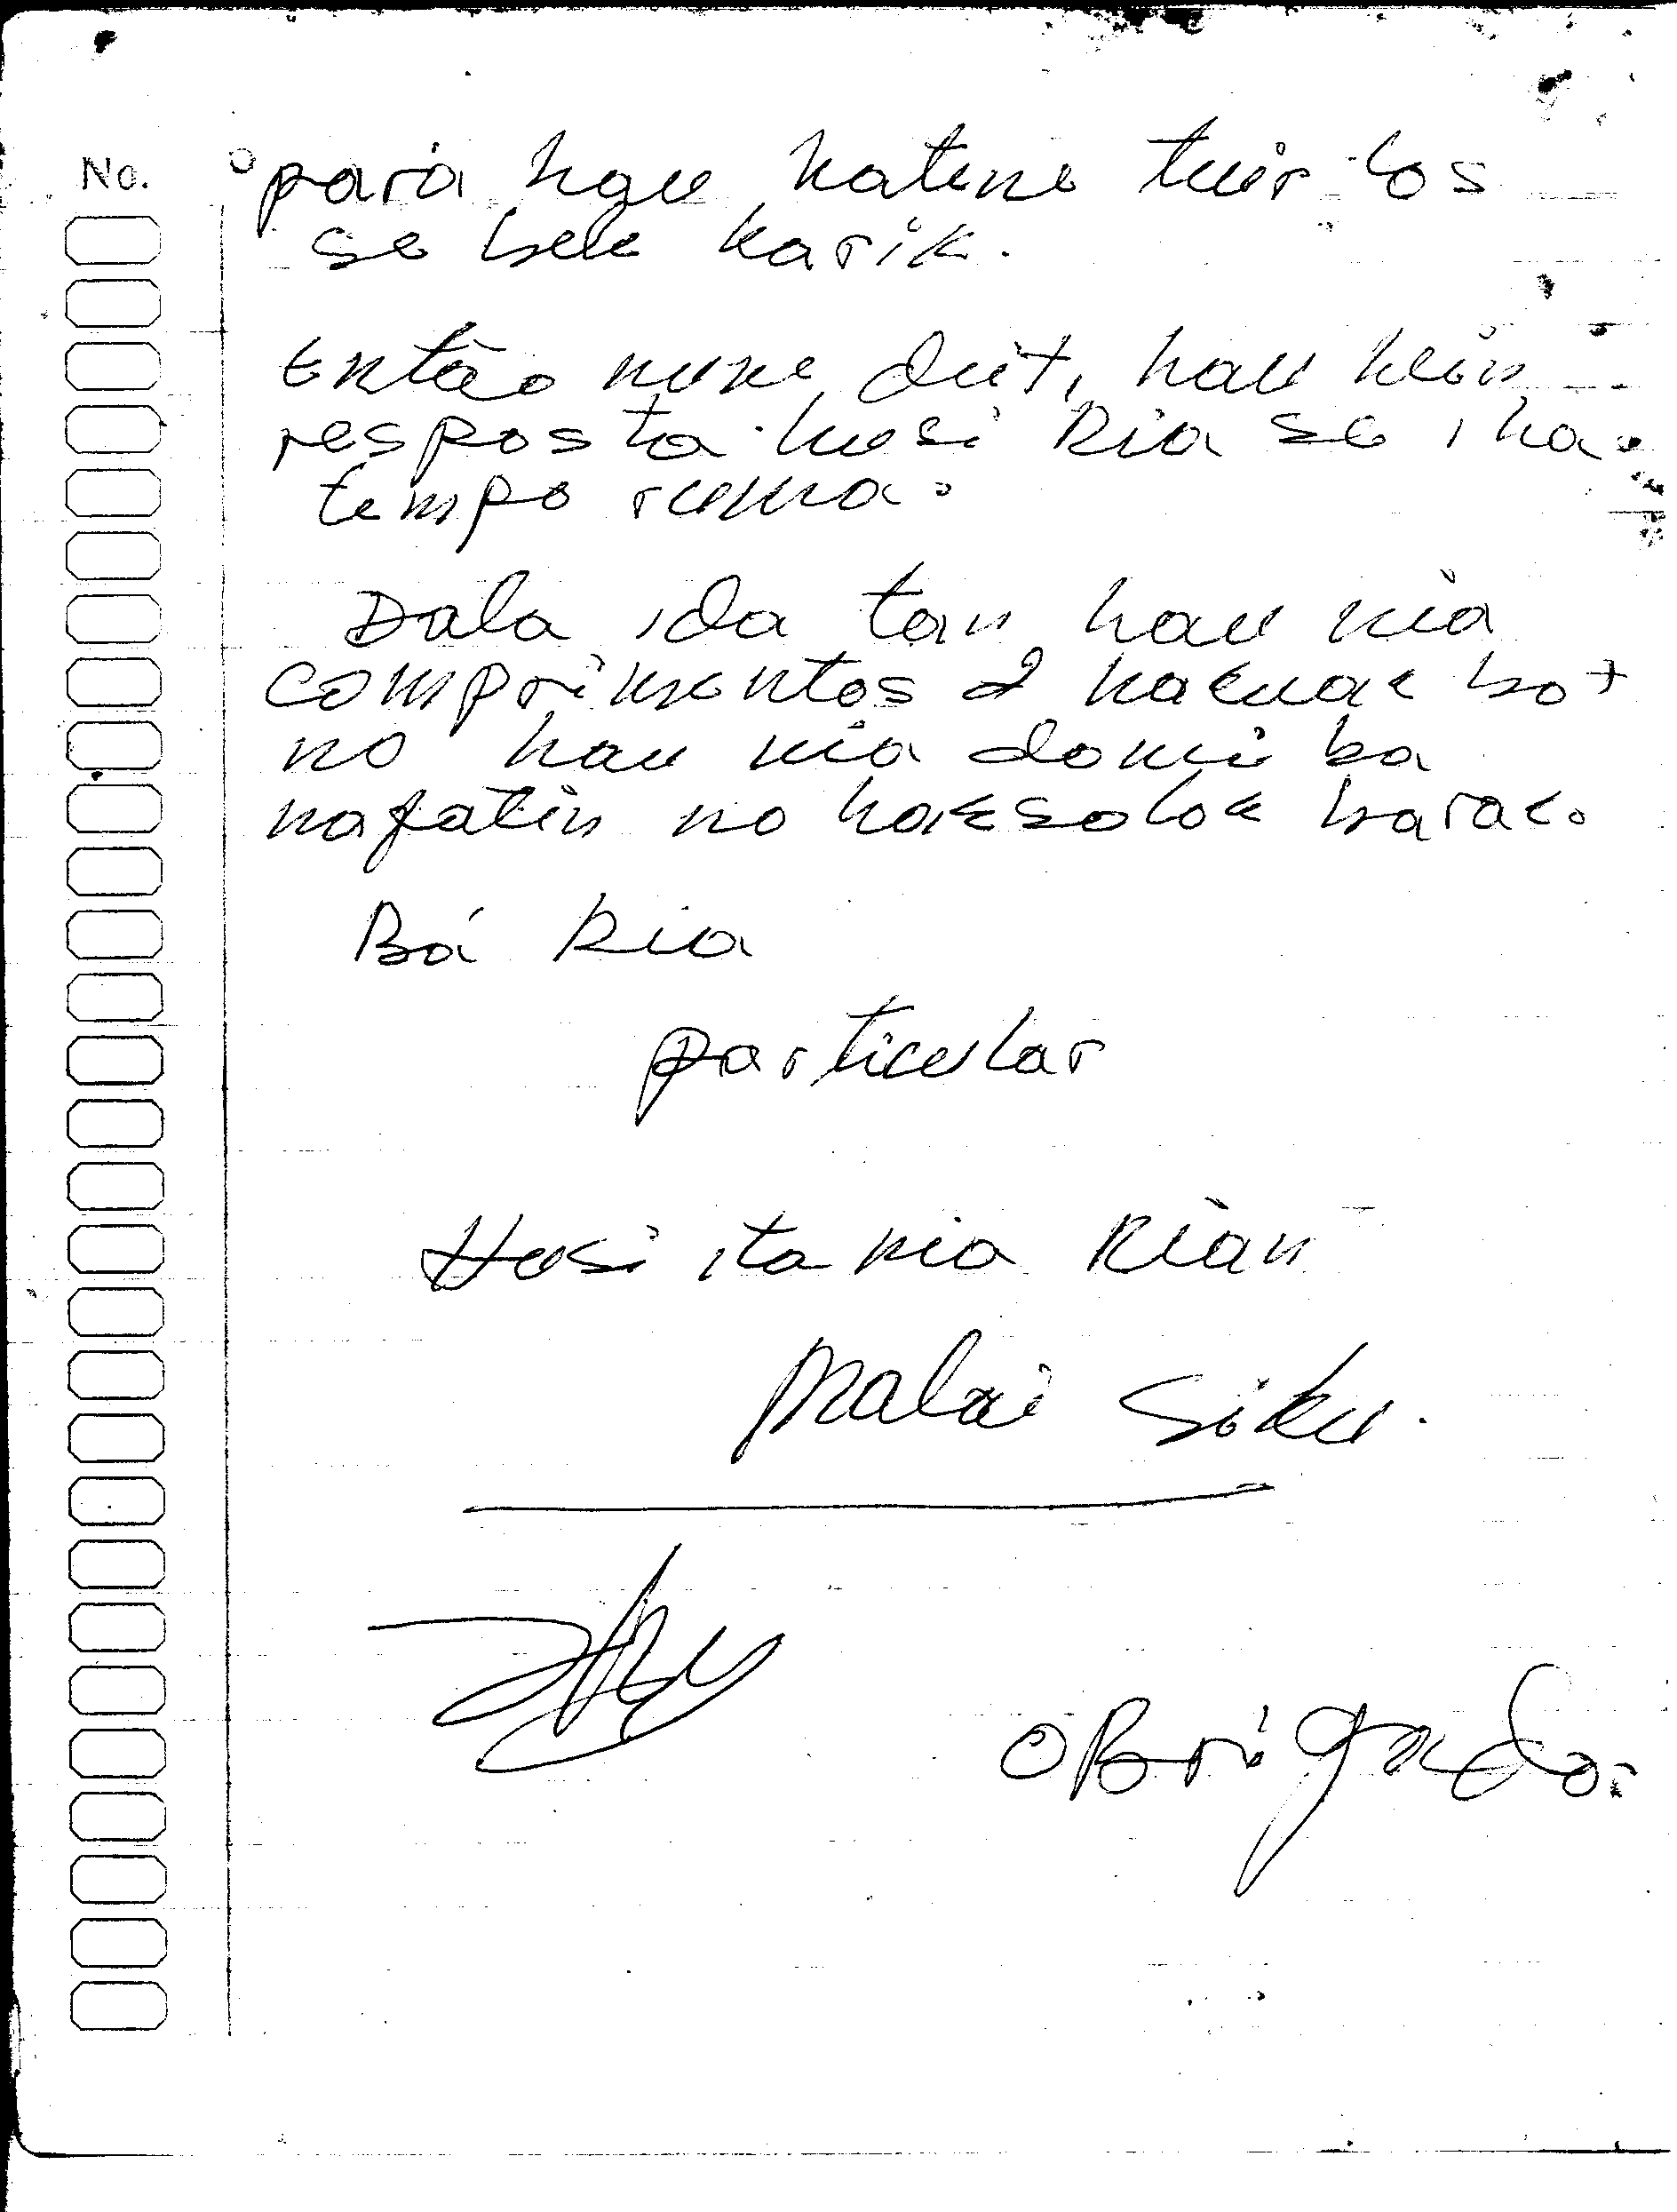 No.
para hau hatene tuir los
se bele karik.
Então nune deit, hau hein
resposta husi Ria se iha
tempo ruma.
Dala ida tan hau nia
comprimentos & hakuak bot
no hau nia domin ba
nafatin no haksolok barak.
Bá Ria
particular
Husi ita nia Rian
Malai Siku.
OBrigado.